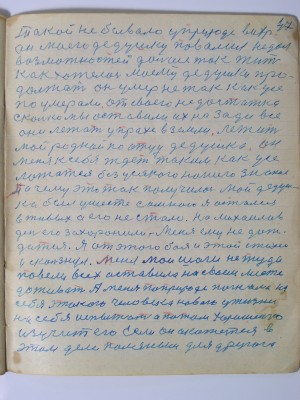 такой не бывало у природе
он моего дедушку повалил недал
возможностей дольше так жит
как хотелос моему дедушки про-
должат он умер не так как усе
поумерали от своего не достатка
сколко мы оставили их на зади все
они лежат у прахе в земли. Лежит
мой родной по отцу дедушка, он
меня к себя ждет таким как усе
ложатся без усякого нашего знания
почему эта так получилос мой дедуш-
ка был умест со мной я остался
в живых а его не стало. На михайлов
ден его захоронили. Меня ему не дож-
датся. Я от этого боя и этой стихеи
ускользнул. Меня мои шаги не туда
повели всех оставил на своем месте
доживат А меня по природе погнало на
себя этакого человека нового у жизни
на себя испытат а потом хорошенко
изучит его если он окажется в
этом деле полезным для другого